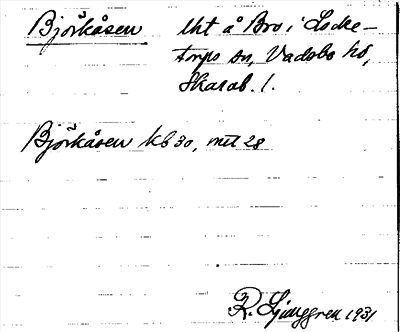 Björkåsen lht å Bro i Locke-
torps sn, Vadsbo hd,
Skarab. l.
Björkåsen kb 30, mtl 28
R. Ljunggren 1931